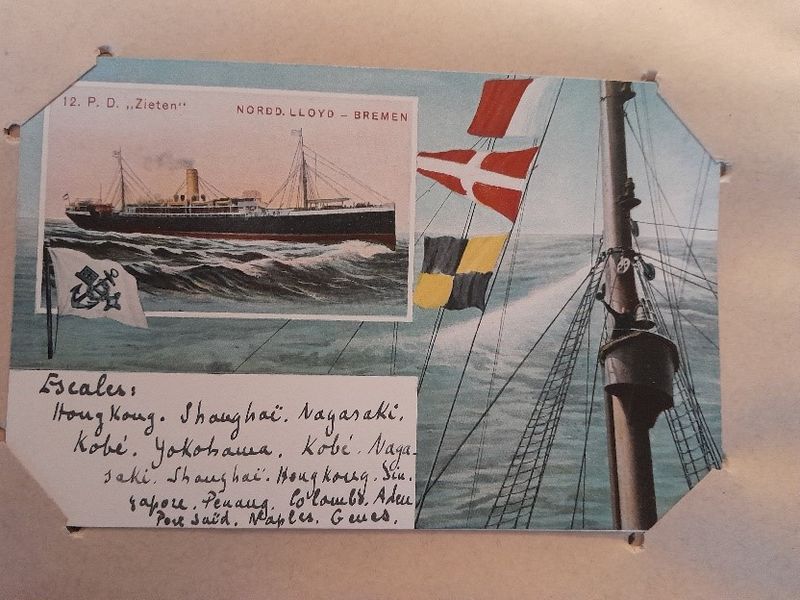 12. P. D. „Zieten“
NORDD. LLOYD – BREMEN
Escales:
HongKong. Shanghaï. Nagasaki.
Kobé. Yokohama. Kobé. Naga-
saki. Shanghaï. HongKong. Sin.
gapore. Penang. Colombo. Aden
Port Saïd. Naples. Genes.